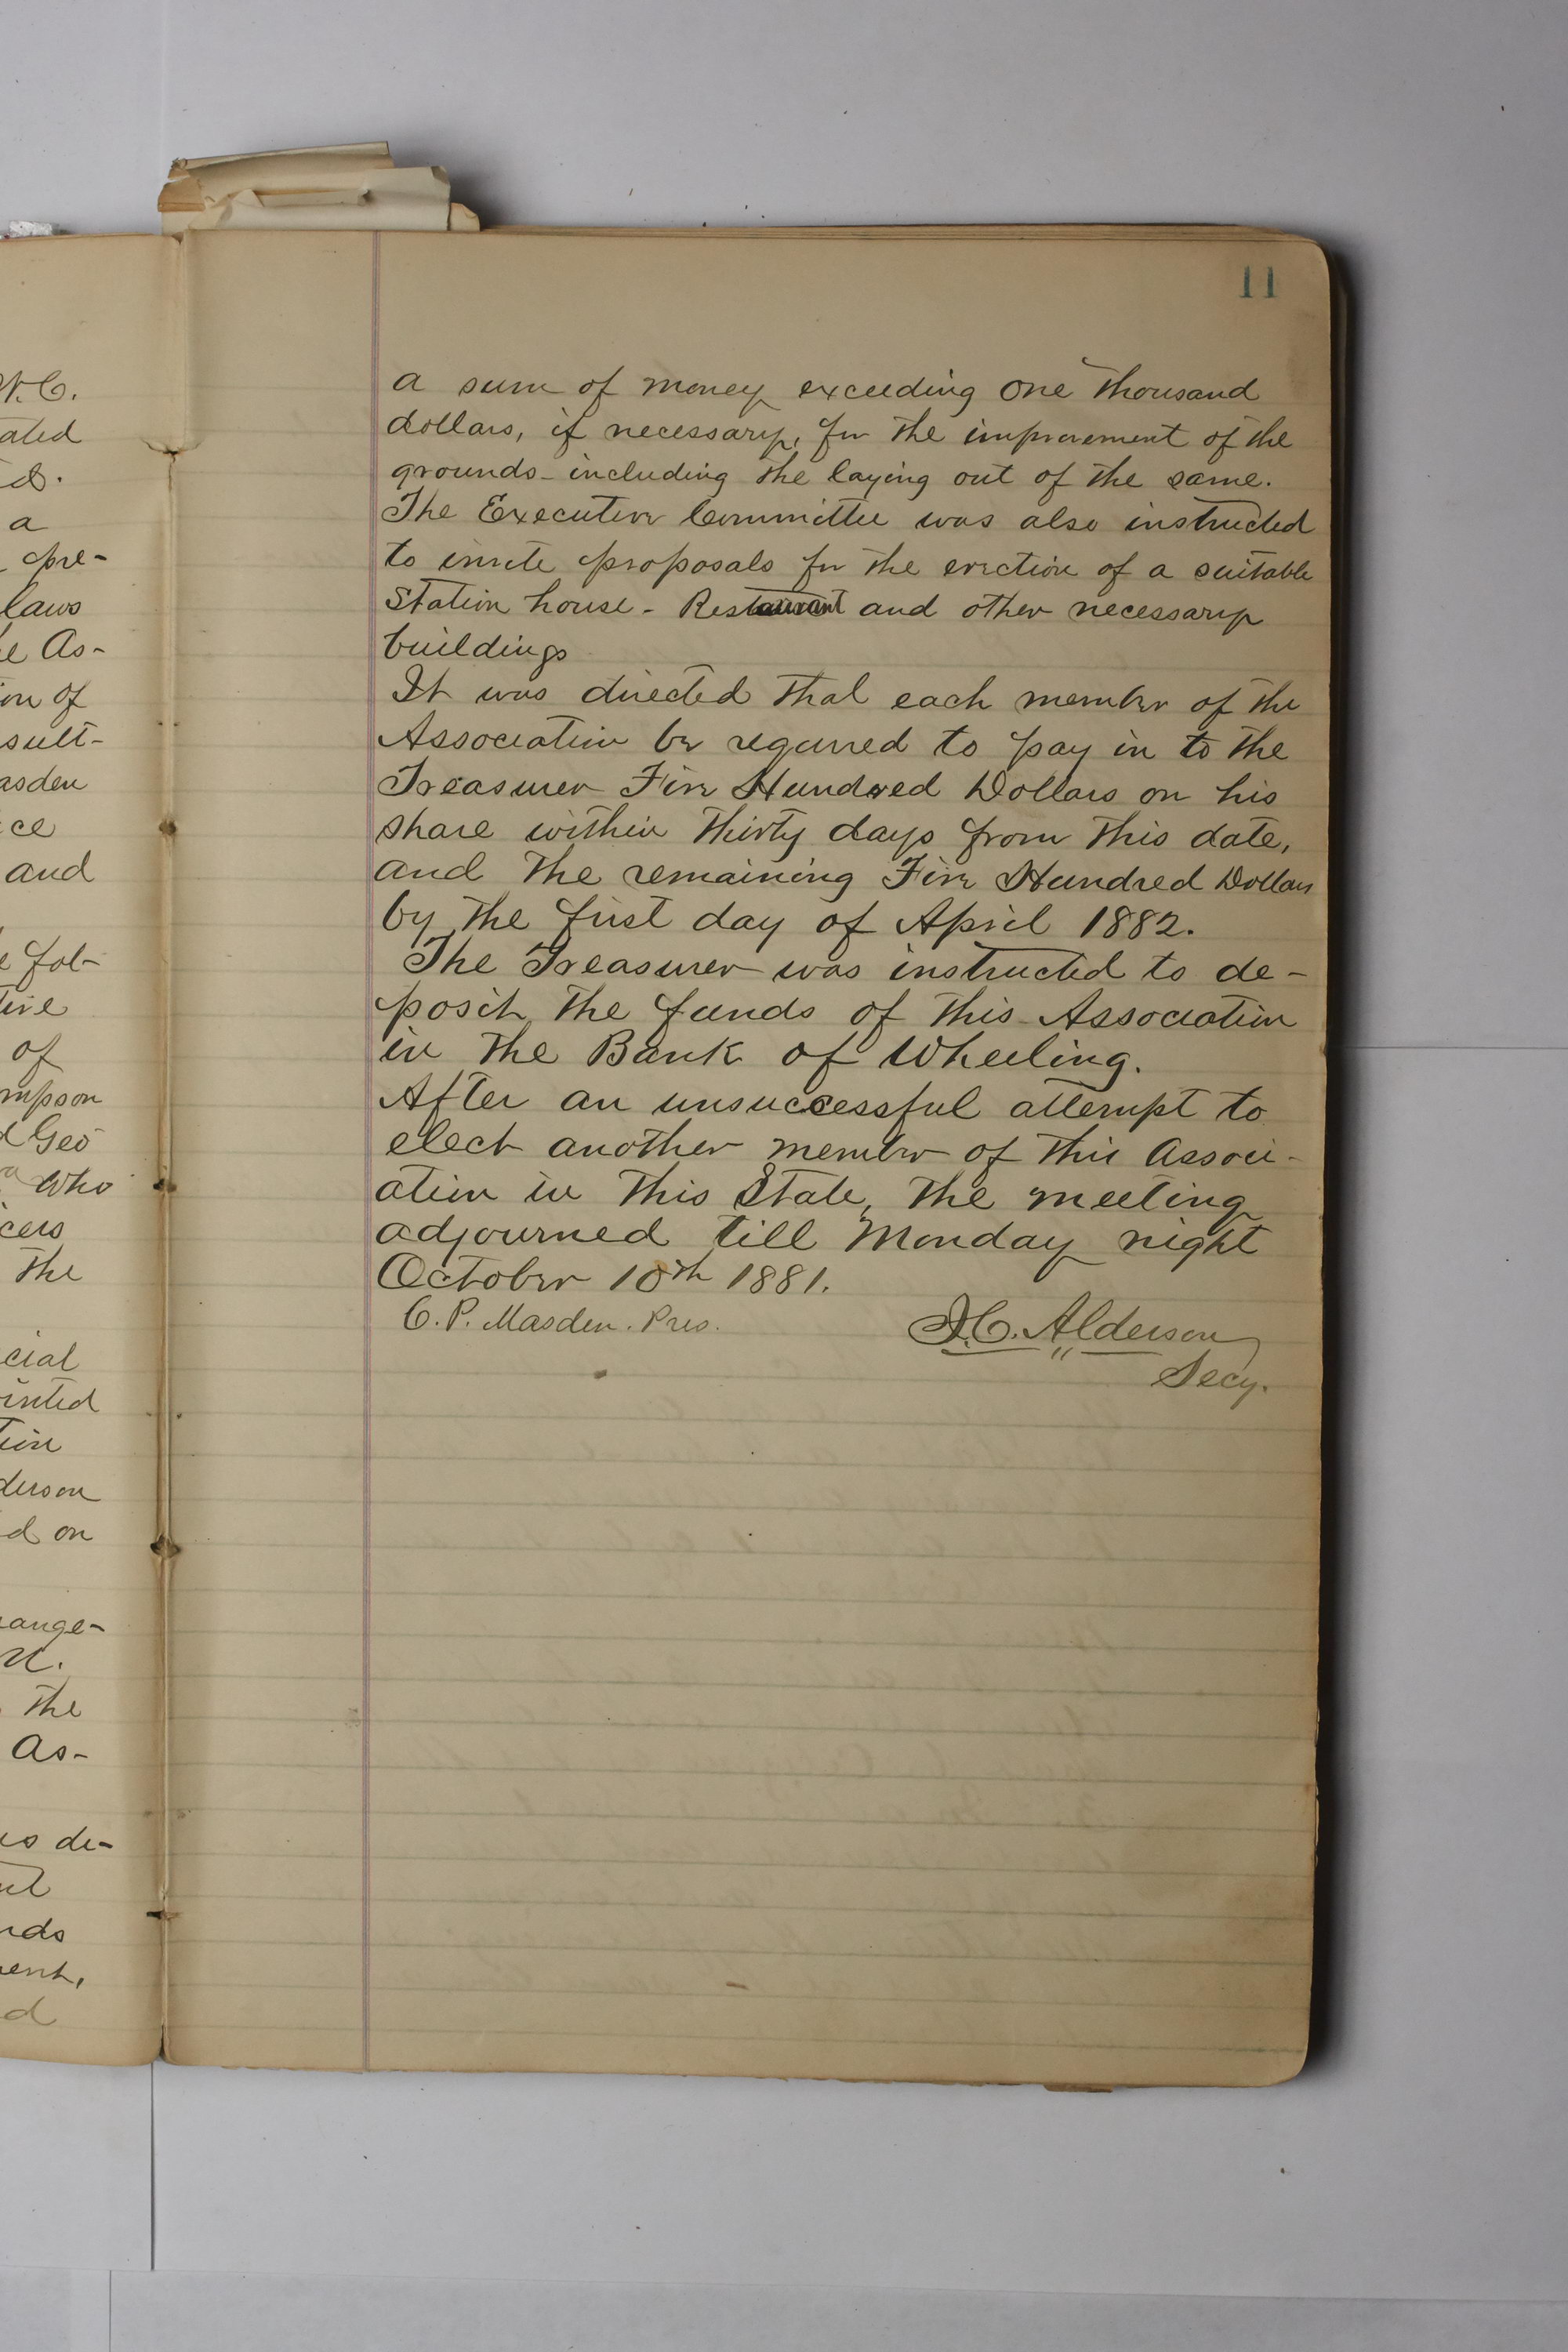 W.C.
ated
a
pre-
laws
e As-
ion of
sult-
asden
ce
and
e fol-
tive
of
mpson
d Geo
Who
cers
the
cial
inted
tion
derson
d on
ange-
the
As-
es de-
rds
ent,
d
11
a sum of money exceeding One thousand
dollars, if necessary, for the improvement of the
grounds - including the laying out of the same.
The Executive Committee was also instructed
to invite proposals for the erection of a suitable
Station house - Restaurant and other necessary
buildings
It was directed that each member of the
Association be required to pay in to the
Treasurer Five Hundred Dollars on his
share within thirty days from this date,
and the remaining Five Hundred Dollars
by the first day of April 1882.
The Treasurer was instructed to de-
posit the funds of this Association
in the Bank of Wheeling.
After an unsuccessful attempt to
elect another member of this Associ-
ation in this State, the meeting
adjourned till Monday night
October 10th 1881.
C. P. Masden. Pres.
J.C. Alderson
Secy.